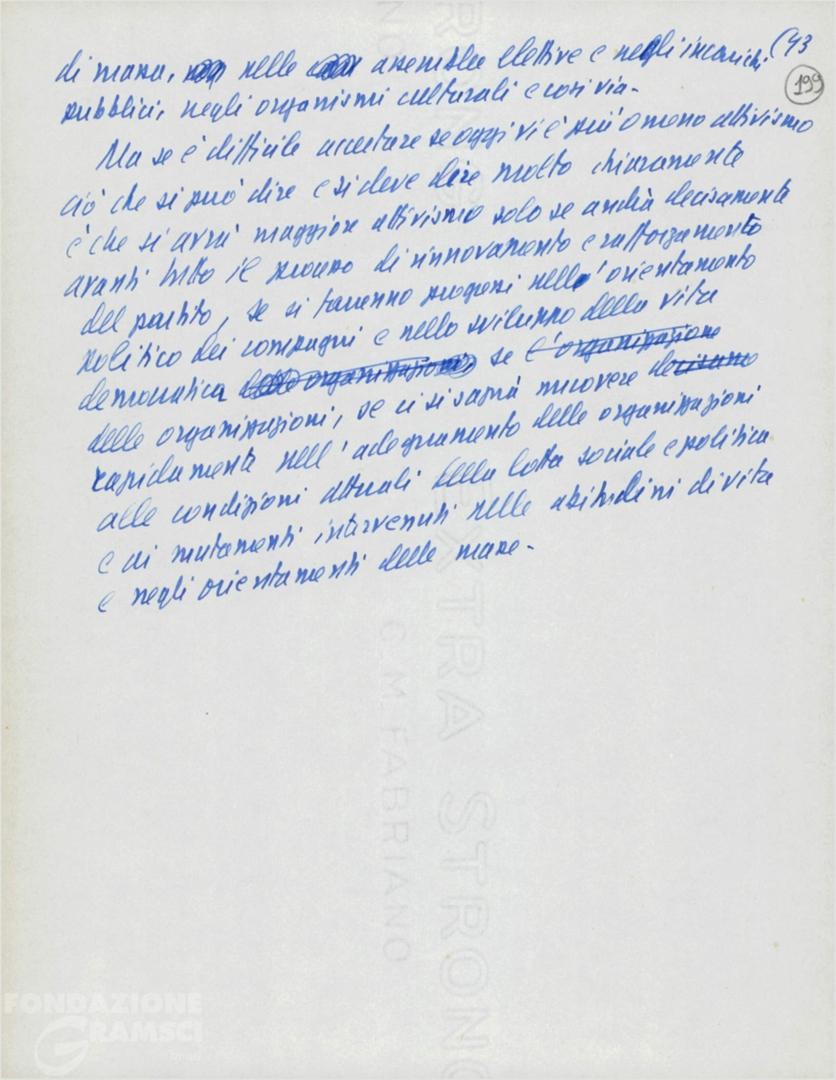 (43
199
di massa, nelle assemblee elettive e negli incarichi
pubblici, negli organismi culturali e così via-
Ma se è difficile accertare se oggi vi è più o meno attivismo
ciò che si può dire e si deve dire molto chiaramente
è che si avrà maggiore attivismo solo se andrà decisamente
avanti tutto il processo di rinnovamento e rafforzamento
del partito, se si faranno progressi nell'orientamento
politico dei compagni e nello sviluppo della vita
democratica delle organizzazioni, se l'organizzazione
delle organizzazioni, se ci si saprà muovere decisamente
rapidamente nell'adeguamento delle organizzazioni
alle condizioni attuali della lotta sociale e politica
e ai mutamenti intervenuti nelle abitudini di vita
e negli orientamenti delle masse-
EXTRA STRONG
G. M. FABRIANO
FONDAZIONE
GRAMSCI